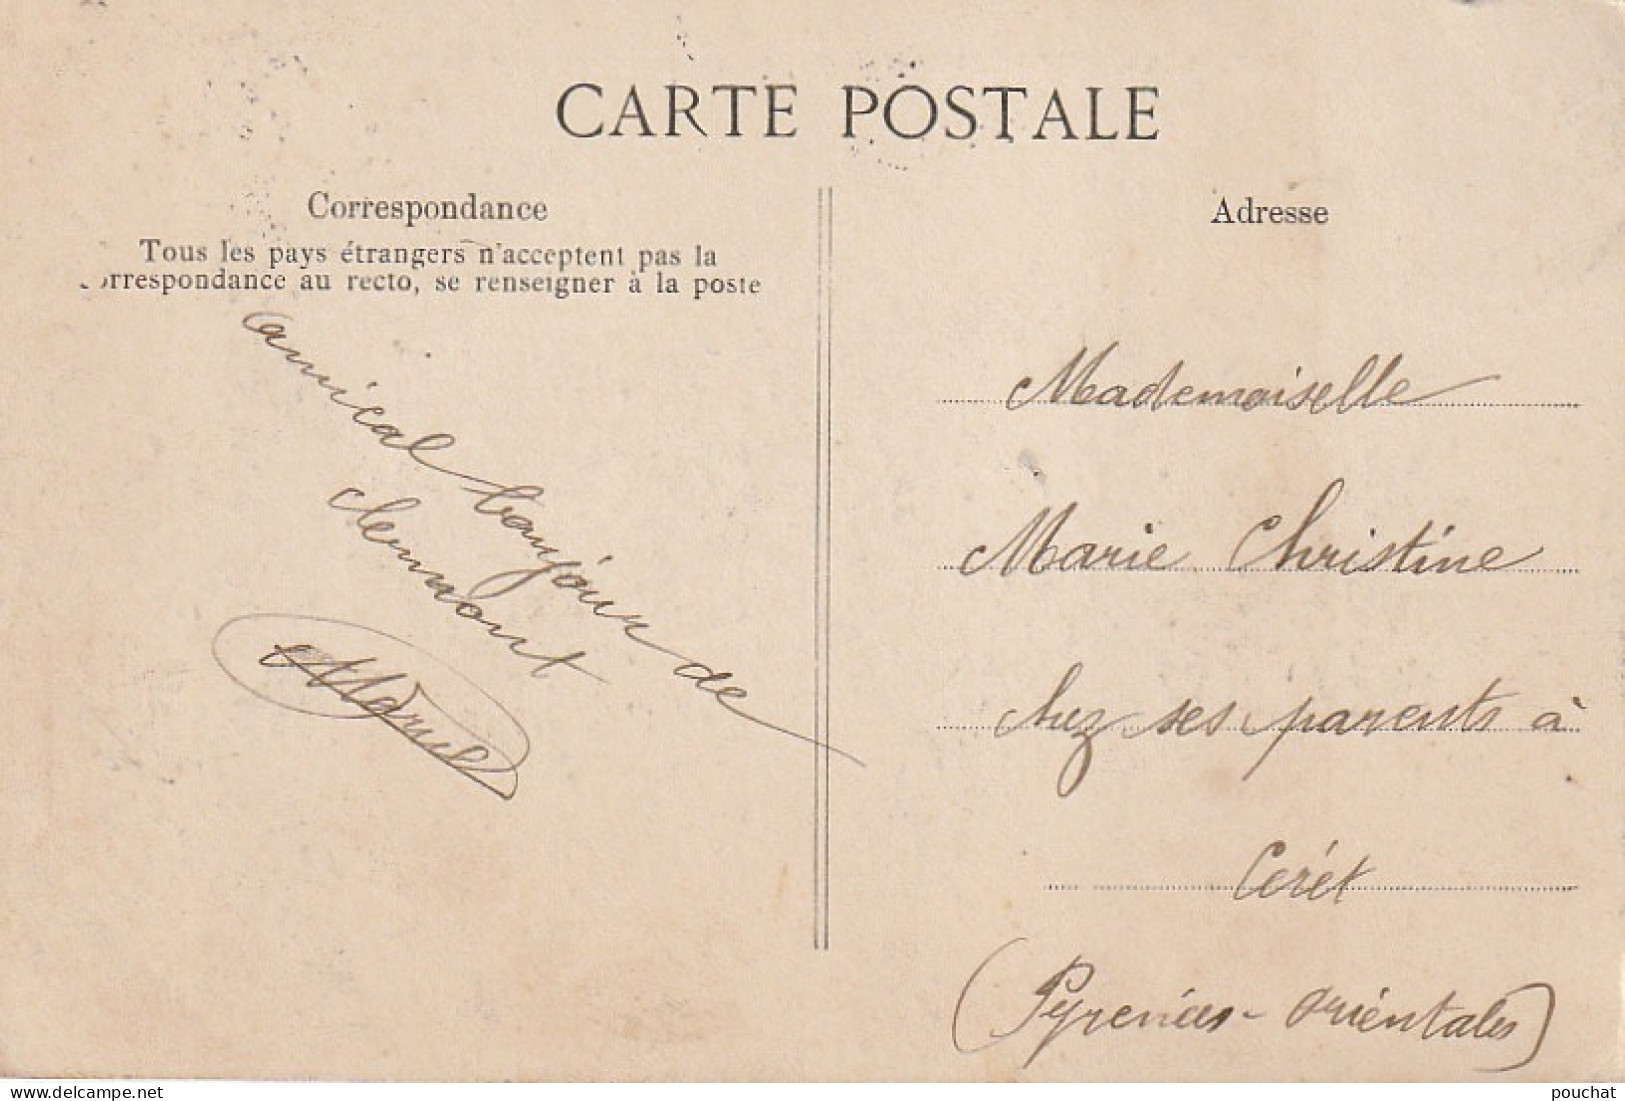 CARTE POSTALE
Correspondance
Tous les pays étrangers n'acceptent pas la
orrespondance au recto, se renseigner à la poste
amical bonjour de
clermont
Adresse
Mademoiselle
Marie Christine
chez ses parents à
Cerét
(Pyrenées-orientales)
delcampe.net
pouchat